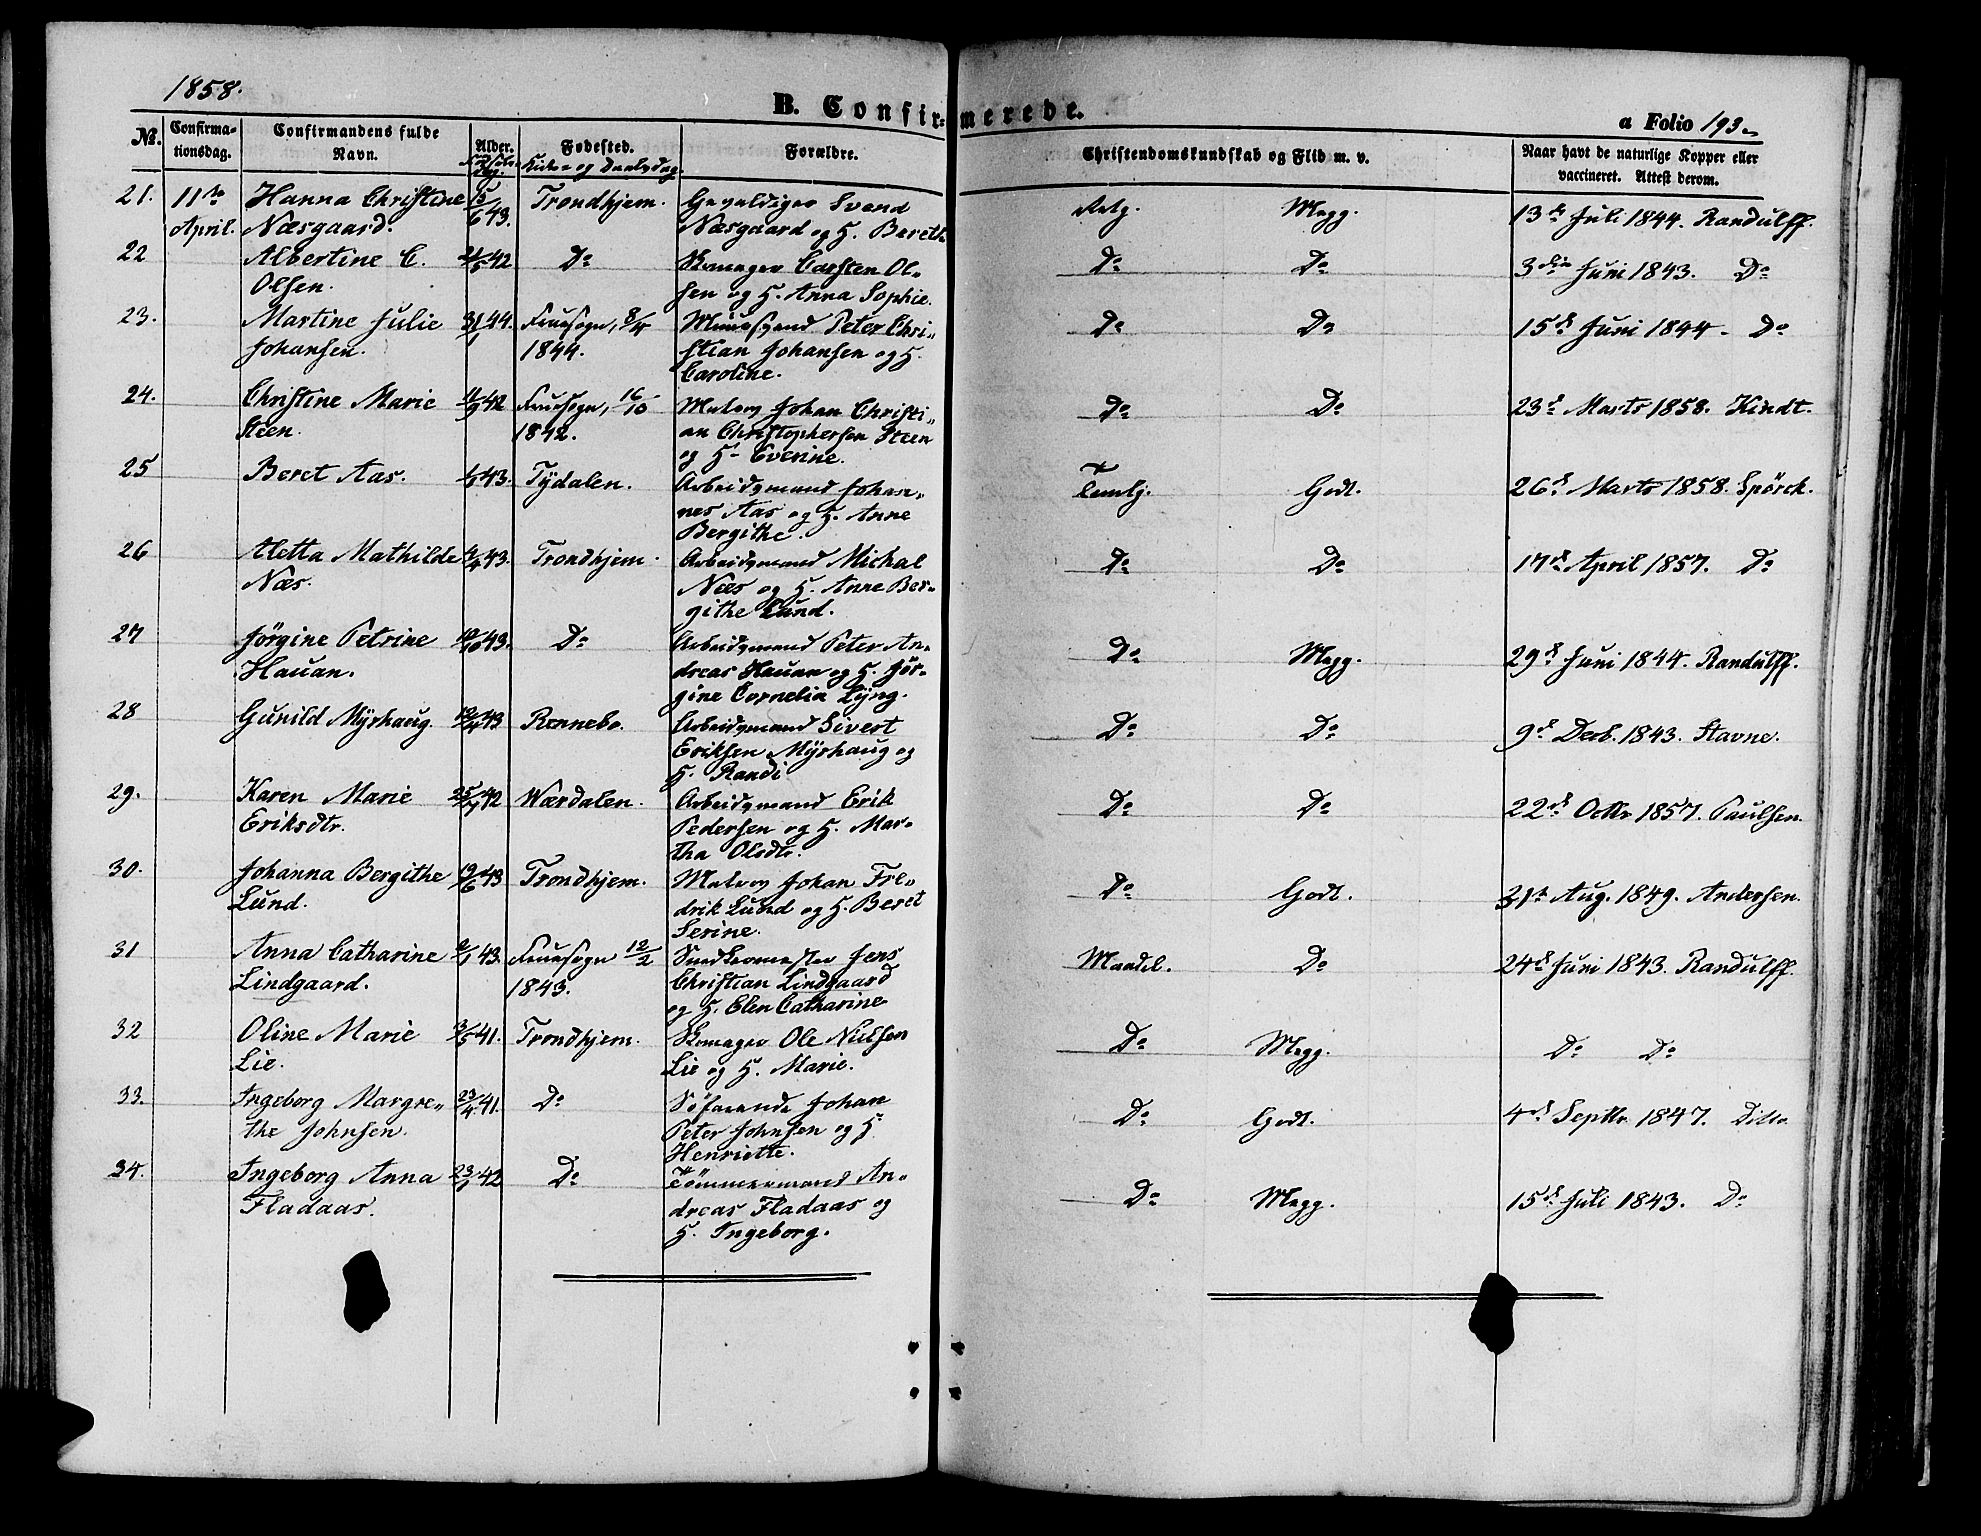 1858.
B. Confirmerede.
a Folio 193.
No. Confirmationsdag. Confirmandens fulde Navn. Alder. Fødselsdag. Fødested. Kirke- og Daabsdag. Forældre. Christendomskundskab og Flid m. v. Naar havt de naturlige Kopper eller vaccineret. Attest derom.
21. 11te Hanna Christine 15/6 43. Trondhjem. Gevaldiger Svend Retg. Megg. 13de Juli 1844. Randulff.
April. Næsgaard. Næsgaard og H. Bereth
22 Albertine C. 21/5 42 Do Skomager Carsten Ol- Do Do 3die Juni 1843. Do
Olsen. sen og H. Anna Sophie.
23. Martine Julie 31/1 44. Fruesogn, 8/4 Muursvend Peter Chri- Do Do 15de Juni 1844. Do
Johansen. 1844. stian Johansen og H.
Caroline.
24. Christine Marie 11/9 42 Fruesogn, 16/10 Matros Johan Christi- Do Do 23de Marts 1858. Kindt.
Steen. 1842. an Christophersen Steen
og H. Everine.
25 Beret Aas. 43. Tydalen. Arbeidsmand Johan- Temlg. Godt. 26de Marts 1858. Spörck.
nes Aas og H. Anne
Bergithe.
26 Aletta Mathilde 43. Trondhjem. Arbeidsmand Michal Do Do 17de April 1857. Do
Næs. Næs og H. Anne Ber-
githe Lund.
27 Jörgine Petrine 43. Do Arbeidsmand Peter An- Do Megg. 29de Juni 1844. Randulff.
Hauan. dreas Hauan og H. Jör-
gine Cornelia Lyng.
28 Gunild Myrhaug. 43 Rennebo. Arbeidsmand Sivert Do Do 9de Decb. 1843. Stavne.
Eriksen Myrhaug og
H. Randi
29. Karen Marie 42 Værdalen. Arbeidsmand Erik Do Do 22de Octbr 1857. Paulsen.
Eriksdtr. Pedersen og H. Mar-
tha Olsdtr.
30. Johanna Bergithe 19/6 43 Trondhjem. Matros Johan Fre- Do Godt. 31te Aug. 1849. Andersen.
Lund. drik Lund og H. Beret
Serine.
31 Anna Catharine 2/1 43. Fruesogn 12/2 Snedkermester Jens Maadel. Do 24de Juni 1843. Randulff.
Lindgaard. 1843. Christian Lindgaard
og H. Elen Catharine
32 Oline Marie 3/5 41. Trondhjem. Skomager Ole Nielsen Do Megg. Do Do
Lie. Lie og H. Marie.
33. Ingeborg Margre- 23/4 41. Do Söfarende Johan Do Godt. 4de Septbr 1847. Ditto
the Johnsen. Peter Johnsen og H
Henriette.
34. Ingeborg Anna 42 Do Tömmermand An- Do Megg. 15de Juli 1843. Do
Fladaas. dreas Fladaas og
H. Ingeborg.